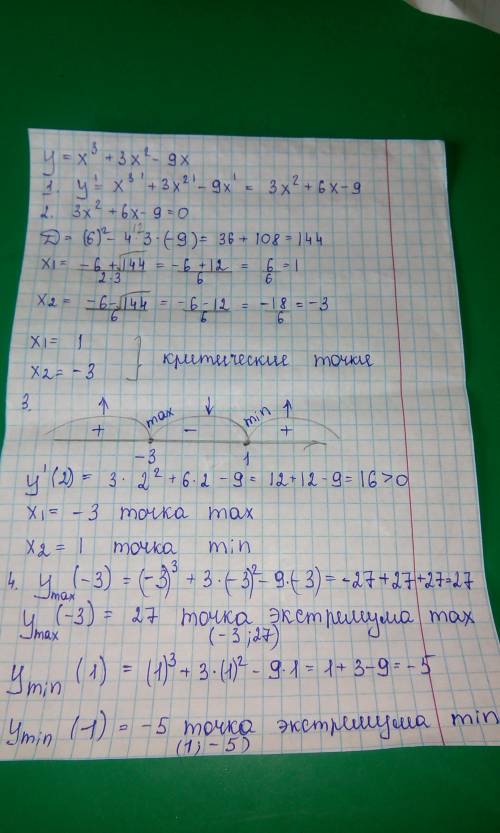 y = x³ + 3x² - 9x
1. y' = x³' + 3x²' - 9x' = 3x² + 6x - 9
2. 3x² + 6x - 9 = 0
D = (6)² - 4·3·(-9) = 36 + 108 = 144
x1 = -6+√144/2·3 = -6+12/6 = 6/6 = 1
x2 = -6-√144/6 = -6-12/6 = -18/6 = -3
x1 = 1
x2 = -3 } критические точки
3. ↑ max ↓ min ↑
+ - +
-3 1
y'(2) = 3·2² + 6·2 - 9 = 12+12-9 = 16 > 0
x1 = -3 точка max
x2 = 1 точка min
4. ymax(-3) = (-3)³ + 3·(-3)² - 9·(-3) = -27+27+27=27
ymax(-3) = 27 точка экстремума max
(-3;27)
ymin(1) = (1)³ + 3·(1)² - 9·1 = 1+3-9 = -5
ymin(-1) = -5 точка экстремума min
(1;-5)